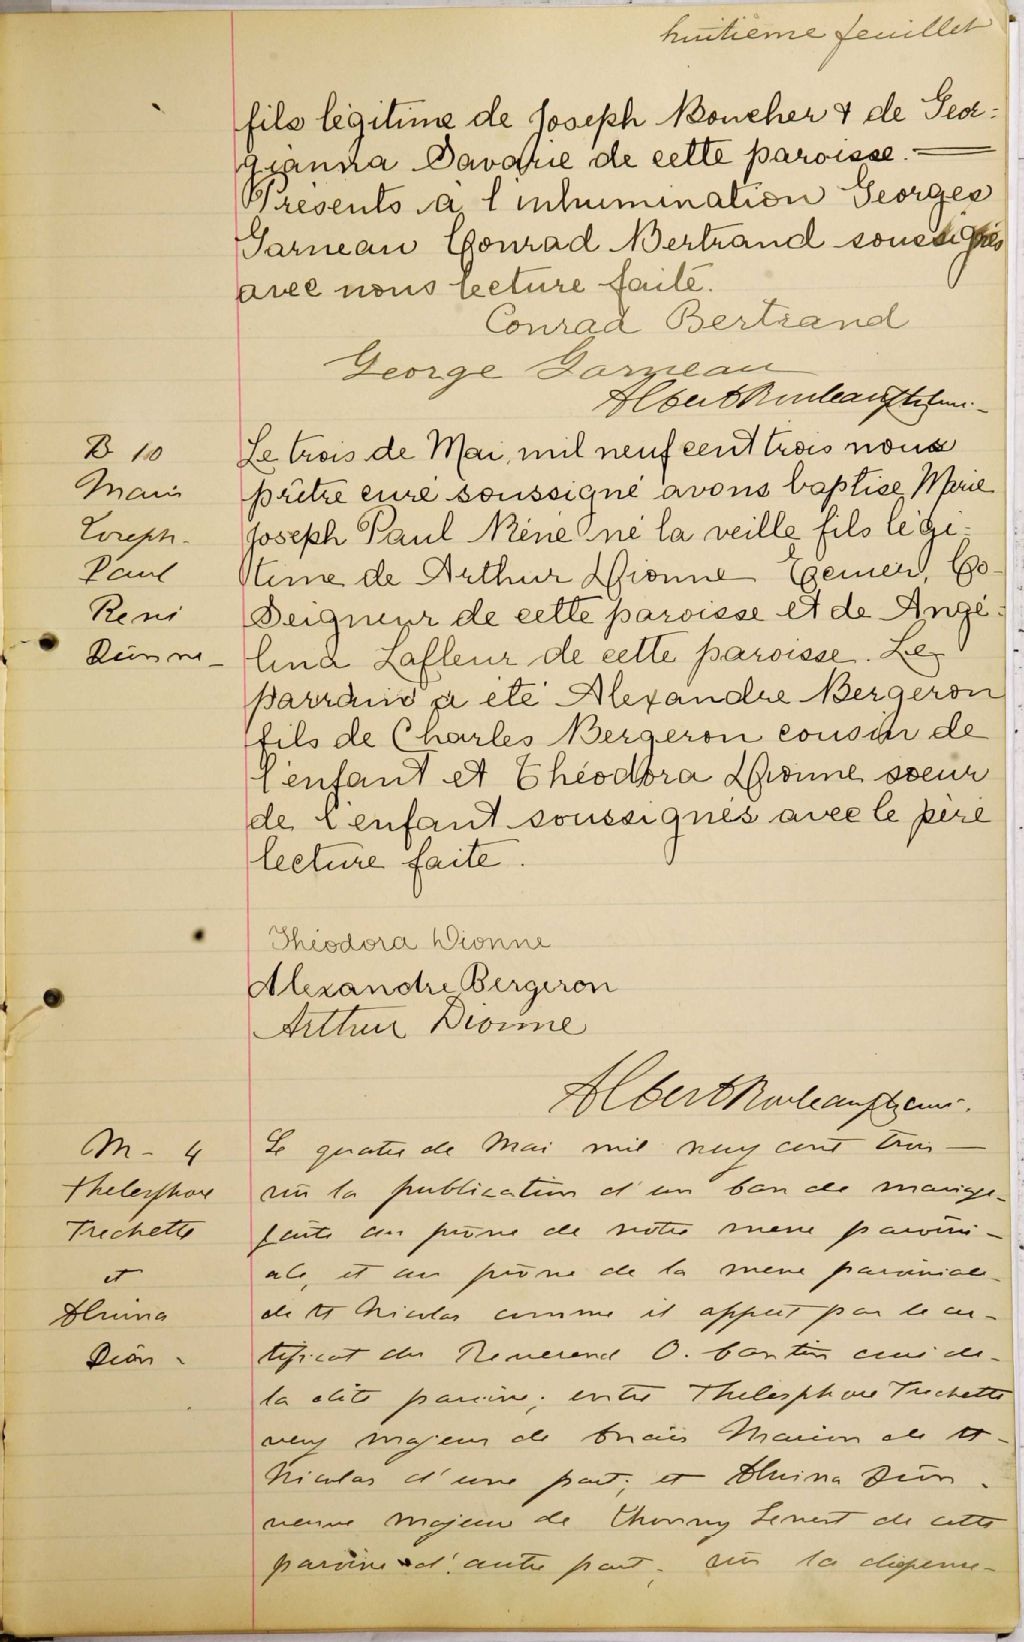 huitième feuillet
fils légitime de Joseph Boucher & de Geor=
gianna Savarie de cette paroisse.
Présents à l'inhumination Georges
Garneau Conrad Bertrand soussignés
avec nous lecture faite.
Conrad Bertrand
George Garneau
Albert Rouleau Ptre Curé.
B 10
Marie
Joseph-
Paul
René
Dionne-
Le trois de Mai, mil neuf cent trois nous
prêtre curé soussigné avons baptise Marie
Joseph Paul Réné né la veille fils légi=
time de Arthur Dionne Ecuier, Co-
Seigneur de cette paroisse et de Angé=
lina Lafleur de cette paroisse. Le
parrain a été Alexandre Bergeron
fils de Charles Bergeron cousin de
l'enfant et Théodora Dionne soeur
de l'enfant soussignés avec le père
lecture faite.
Théodora Dionne
Alexandre Bergeron
Arthur Dionne
Albert Rouleau Ptre curé.
M - 4
Thelesphore
Frechette
et
Alvina
Dion -
Le quatre de Mai mil neuf cent trois —
vu la publication d'un ban de mariage-
faite au prône de notre messe paroissi-
ale, et au prône de la messe paroissiale-
de St Nicolas comme il appert par le cer-
tificat du Reverend O. Cantin curé de-
la dite paroisse; entre Thelesphore Frechette
veuf majeur de Marion de St-
Nicolas d'une part; et Alvina Dion -
veuve majeure de de cette
paroisse d'autre part; vu la dispense-